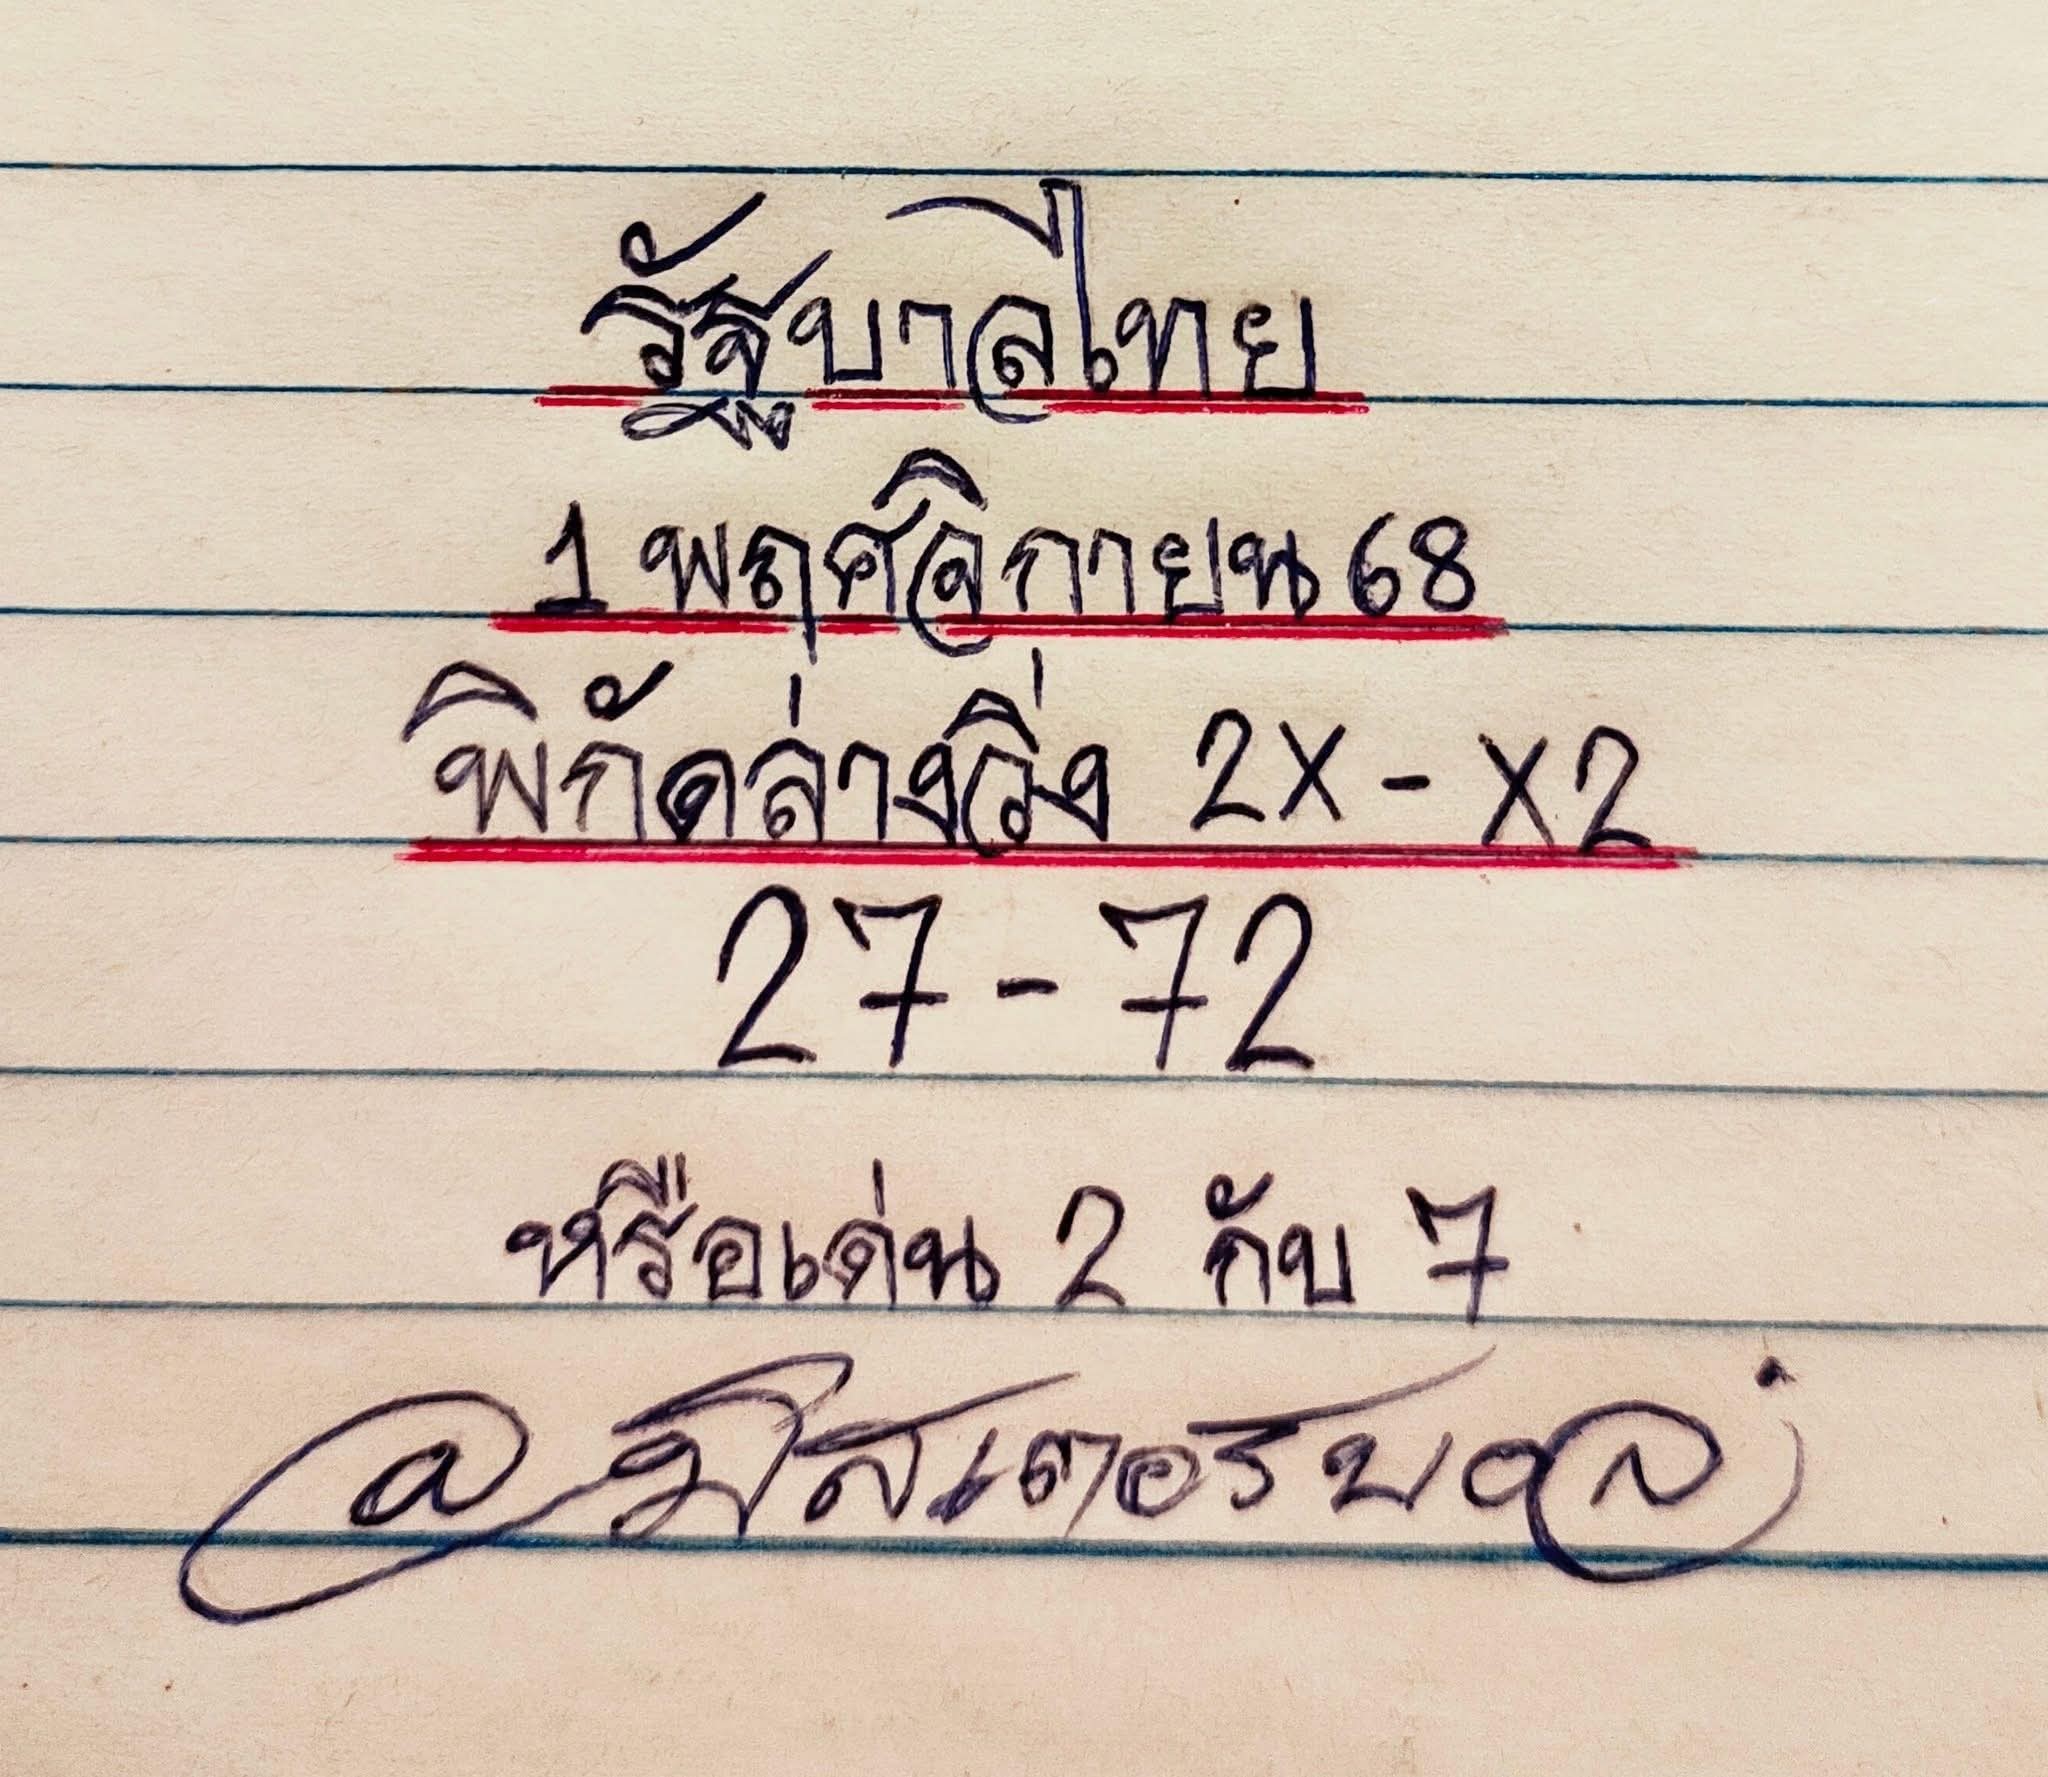 รัฐบาลไทย
1 พฤศจิกายน 68
พิกัดล่างวิ่ง 2X - X2
27 - 72
หรือเด่น 2 กับ 7
@มิสเตอร์บอล